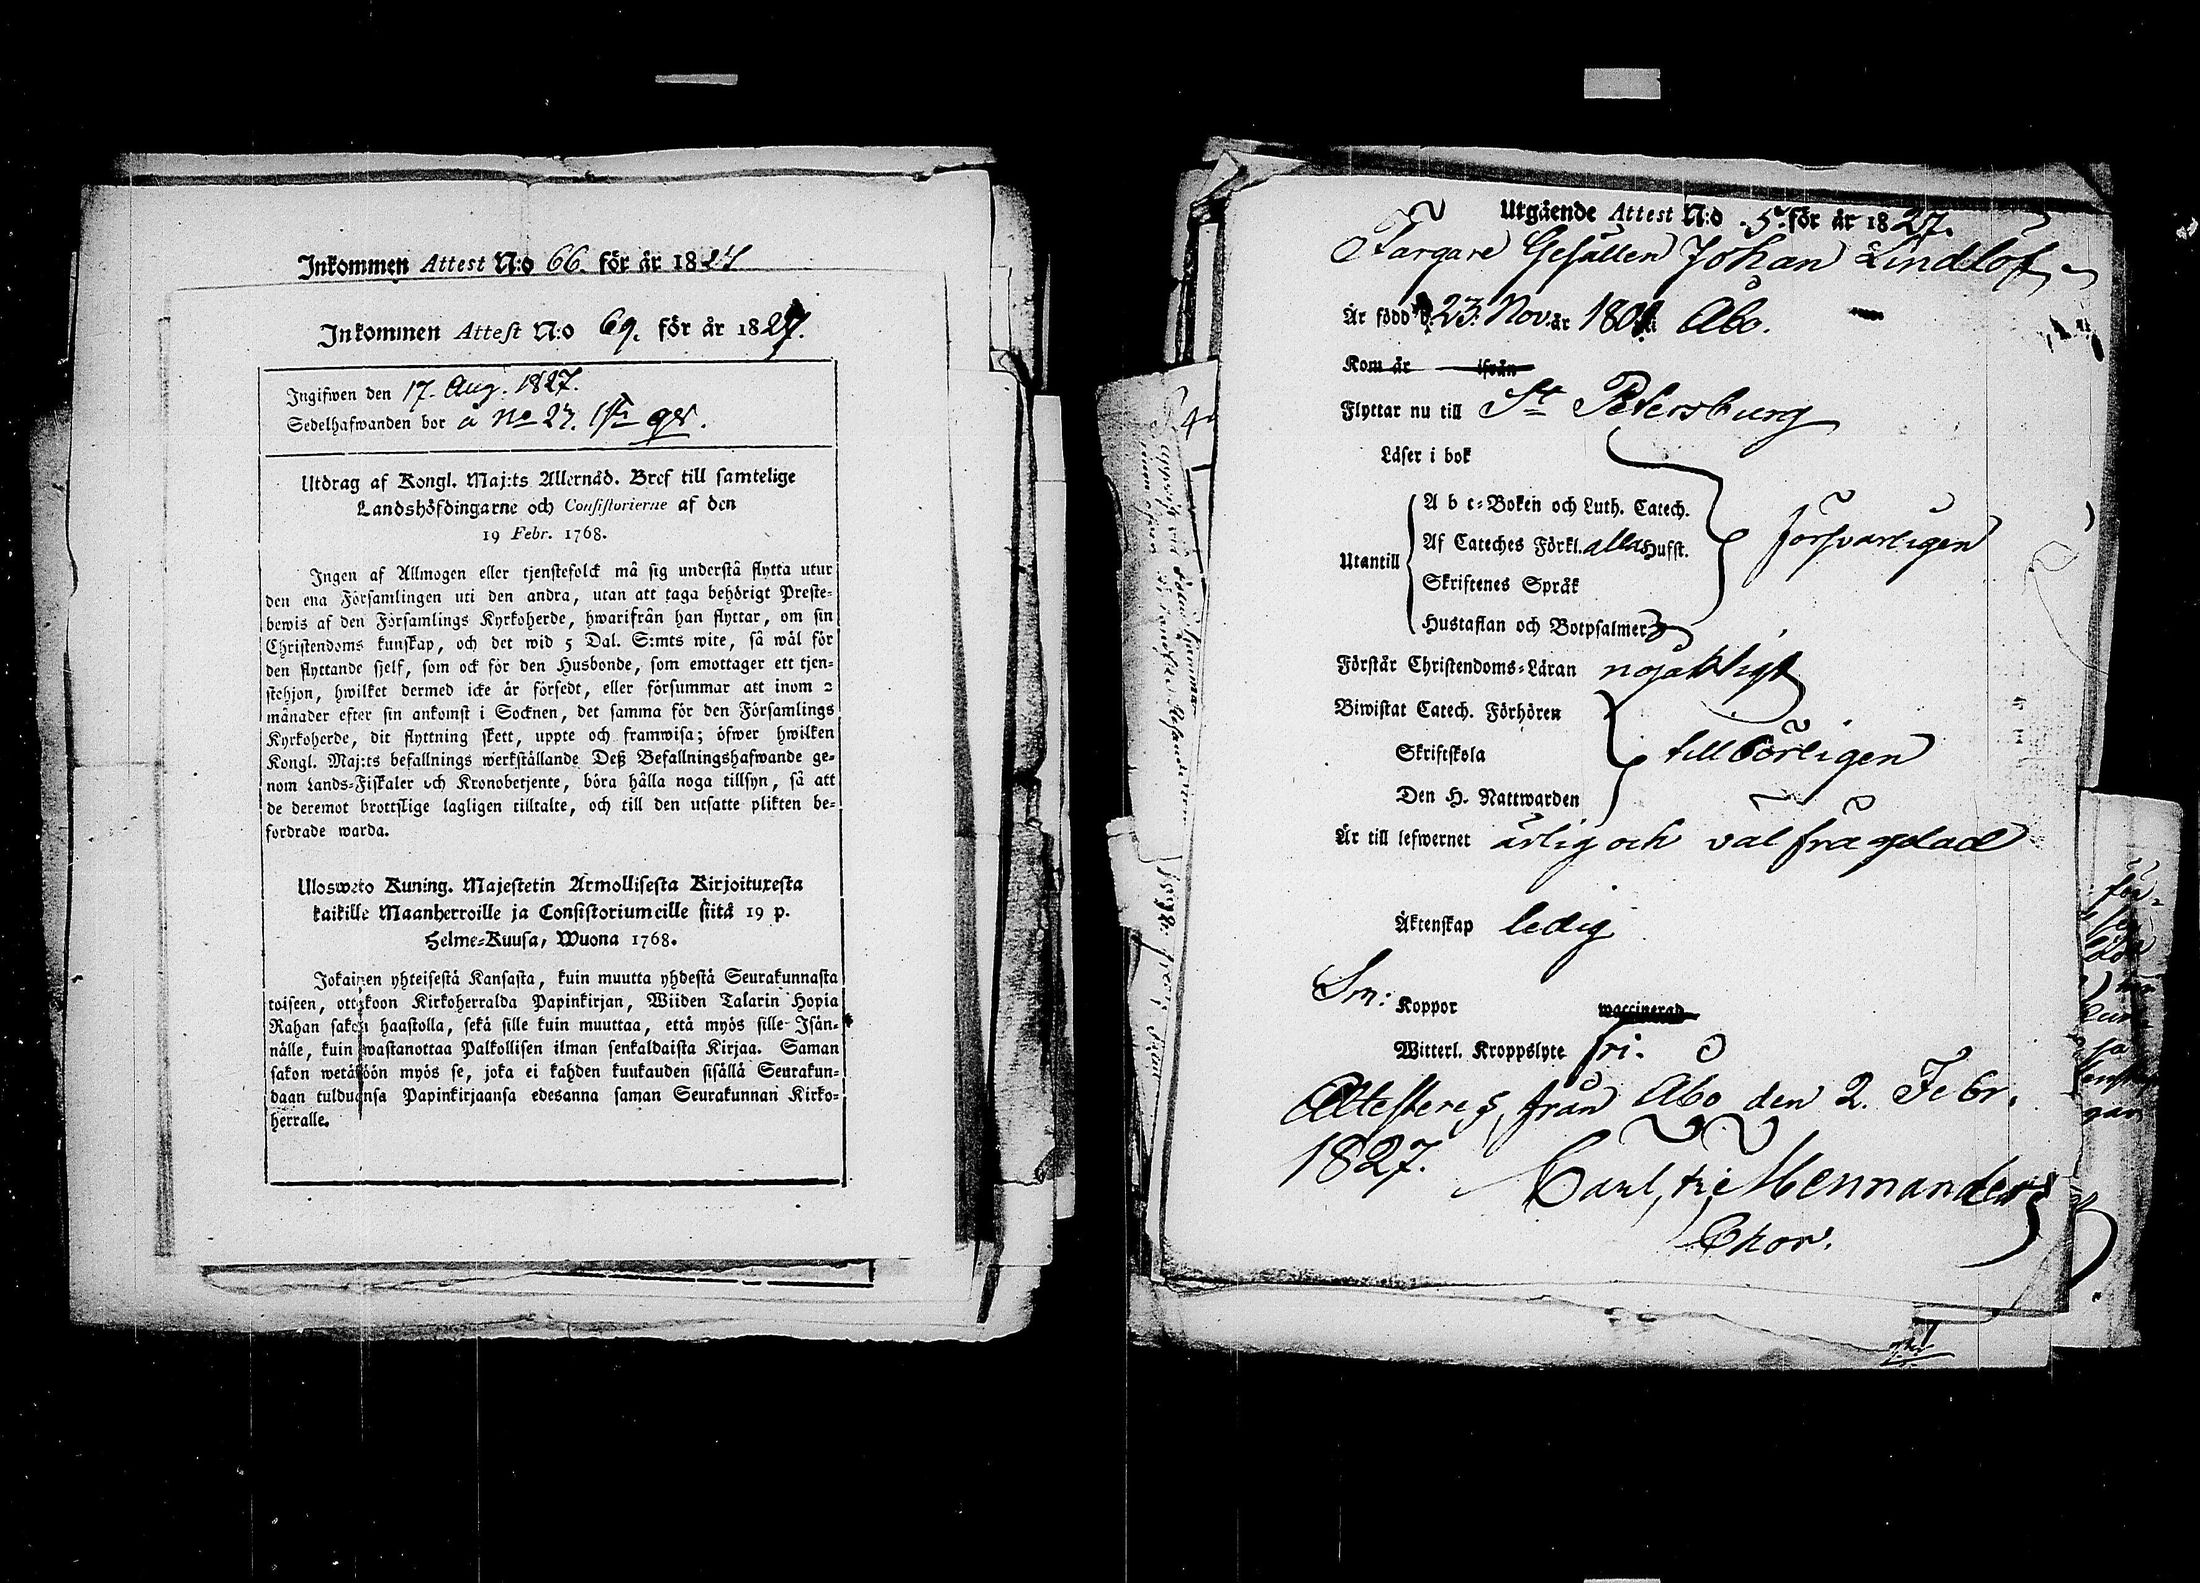 Inkommen Attest N:o 66. för år 1827
Inkommen Attest N:o 69. för år 1827.
Ingifwen den 17. Aug. 1827.
Sedelhafwanden bor å No 27. 1sta qvr.
Utdrag af Kongl. Maj:ts Allernåd. Bref till samtelige
Landshöfdingarne och Consistorierne af den
19 Febr. 1768.
Ingen af Allmogen eller tjenstefolck må sig understå flytta utur
den ena Församlingen uti den andra, utan att taga behörigt Preste-
bewis af den Församlings Kyrkoherde, hwarifrån han flyttar, om sin
Christendoms kunskap, och det wid 5 Dal. S:mts wite, så wäl för
den flyttande sjelf, som ock för den Husbonde, som emottager ett tjen-
stehjon, hwilket dermed icke är försedt, eller försummar att inom 2
månader efter sin ankomst i Socknen, det samma för den Församlings
Kyrkoherde, dit flyttning skett, uppte och framwisa; öfwer hwilken
Kongl. Maj:ts befallnings werkställande Deß Befallningshafwande ge-
nom Lands-Fiskaler och Kronobetjente, böra hålla noga tillsyn, så att
de deremot brottslige lagligen tilltalte, och till den utsatte plikten be-
fordrade warda.
Ulosweto Kuning. Majestetin Armollisesta Kirjoituxesta
kaikille Maanherroille ja Consistoriumeille siitä 19 p.
Helme-Kuusa, Wuona 1768.
Jokainen yhteisestä Kansasta, kuin muutta yhdestä Seurakunnasta
toiseen, ottakoon Kirkoherralda Papinkirjan, Wiiden Talarin Hopia
Rahan sakon haastolla, sekä sille kuin muuttaa, että myös sille Isän-
nälle, kuin wastanottaa Palkollisen ilman senkaldaista Kirjaa. Saman
sakon wetäköön myös se, joka ei kahden kuukauden sisällä Seurakun-
daan tulduansa Papinkirjaansa edesanna saman Seurakunnan Kirko-
herralle.
Utgående Attest N:o 5. för år 1827.
Färgare Gesällen Johan Lindlöf
Är född d. 23. Nov. år 1801 i Åbo.
Kom år ifrån
Flyttar nu till St Petersburg
Läser i bok
A b c-Boken och Luth. Catech.
försvarligen
Af Cateches Förkl. alla Hufst.
Utantill
Skriftenes Språk
Hustaflan och Botpsalmer
Förstår Christendoms-Läran nöjaktigt
Biwistat Catech. Förhören
Skriftskola
tillbörligen
Den H. Nattwarden
Är till lefwernet ärlig och väl frägdad
Äktenskap ledig
Koppor waccinerad
Witterl. Kroppslyte fri.
Attesteres, från Åbo den 2. Febr.
1827.
Carl, Fr: Mennander